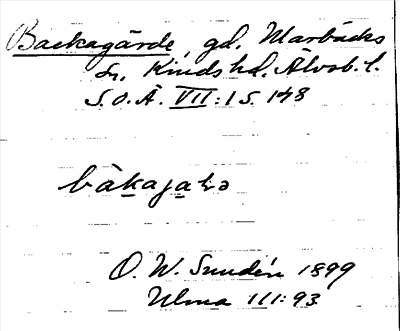 Backagärde, gd. Marbäcks
sn. Kinds hd. Älvsb. l.
S. O. Ä. VII:1 S. 148
O. W. Sundén 1899
Ulma 111:93